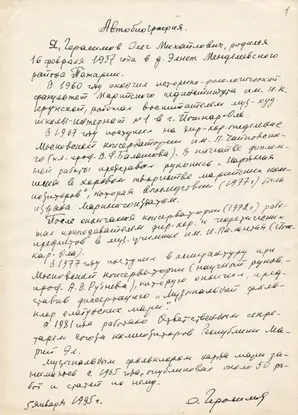 1
Автобиография.
Я, Герасимов Олег Михайлович, родился
16 февраля 1937 года в д. Элнет Менделеевского
района Татарии.
В 1960 году окончил историко-филологический
факультет Марийского пединститута им. Н.К.
Крупской, работал воспитателем муз-худ.
школы-интерната №1 в г. Йошкар-Оле.
В 1967 году поступил на дир-хор. отделение
Московской консерватории им. П. Чайковского
(кл. проф. В.Ф. Балашова). В качестве диплом-
ной работы представил рукопись "Народная
песня в хоровом творчестве марийских ком-
позиторов", которая впоследствии (1977 г.) была
издана Маркнигоиздатом.
После окончания консерватории (1972 г.) рабо-
тал преподавателем дир-хор. и теоретических
предметов в муз. училище им. И. Палантая (Йош-
кар-Ола).
В 1977 году поступил в аспирантуру при
Московской консерватории (научный руков.
проф. А.В. Руднева), которую окончил, пред-
ставив диссертацию "Музыкальный фольк-
лор елабужских мари".
С 1981 года работаю Ответственным секре-
тарем Союза композиторов Республики Ма-
рий Эл.
Музыкальным фольклором народа мари за-
нимаюсь с 1965 года, опубликовал около 50 ра-
бот и статей по нему.
5 января 1995 г. О. Герасимов